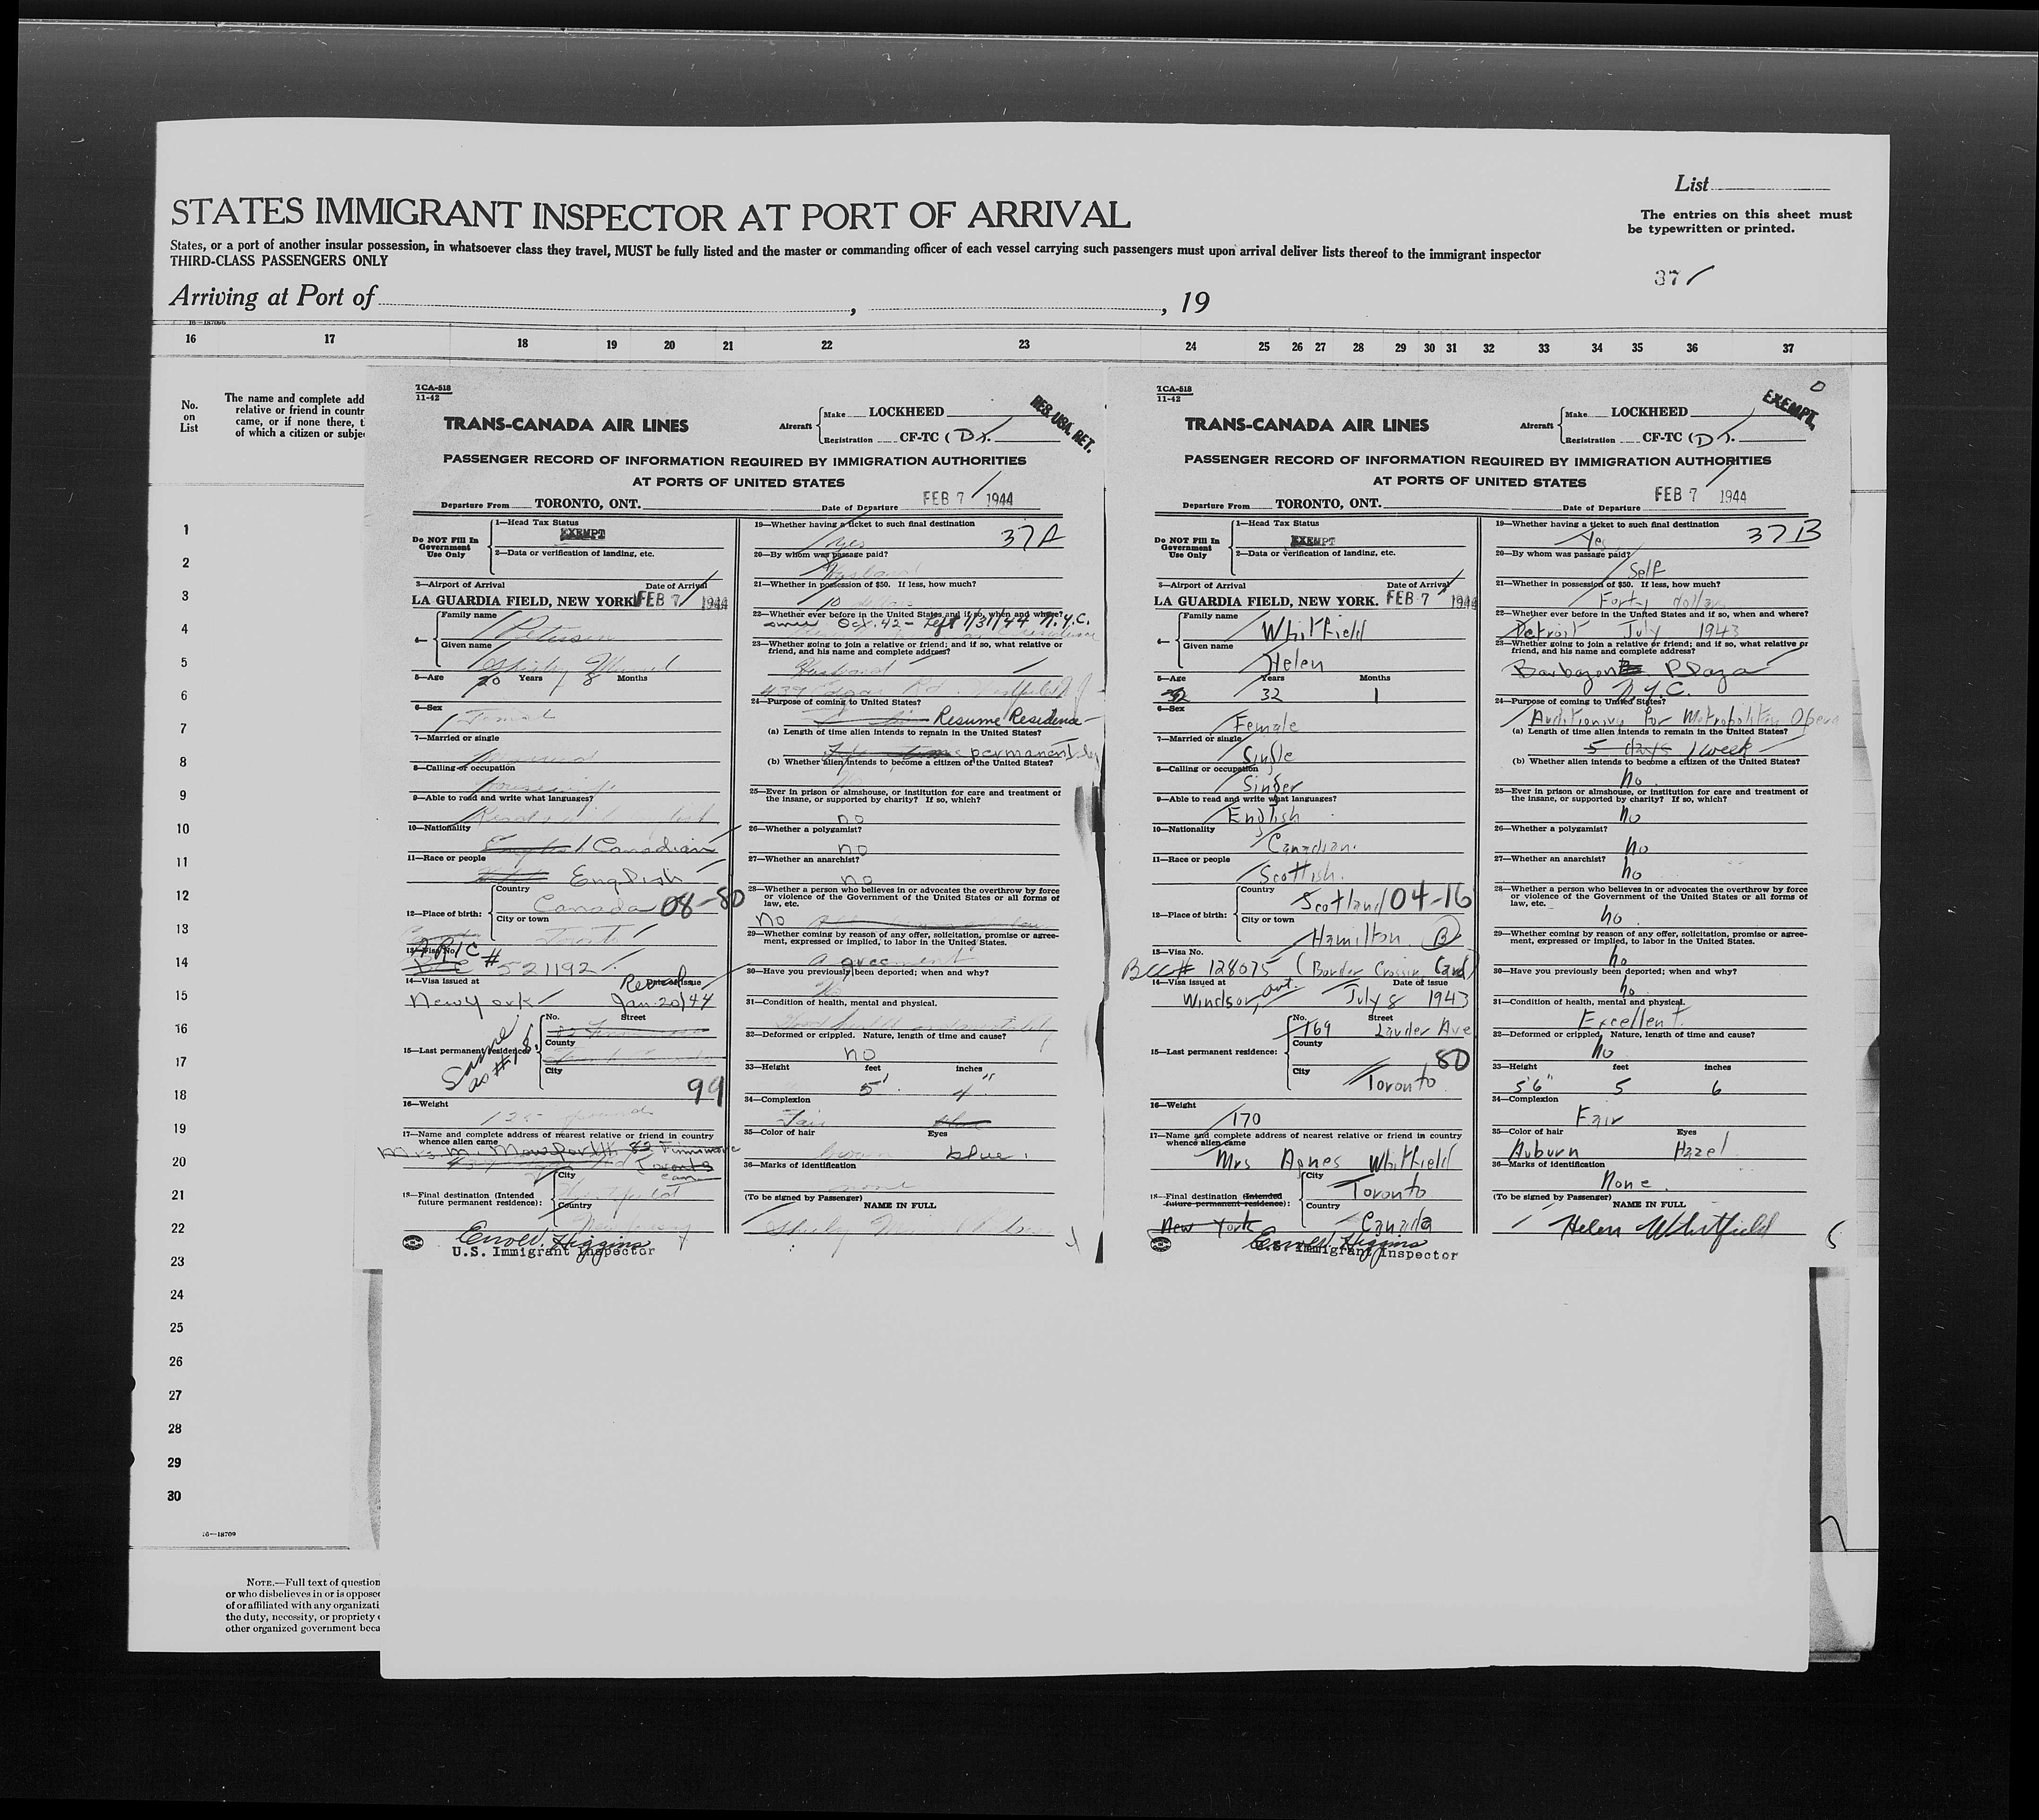 List
STATES IMMIGRANT INSPECTOR AT PORT OF ARRIVAL
The entries on this sheet must
be typewritten or printed.
States, or a port of another insular possession, in whatsoever class they travel, MUST be fully listed and the master or commanding officer of each vessel carrying such passengers must upon arrival deliver lists thereof to the immigrant inspector
THIRD-CLASS PASSENGERS ONLY
37
Arriving at Port of , , 19
16 17 18 19 20 21 22 23 24 25 26 27 28 29 30 31 32 33 34 35 36 37
No.
on
List
The name and complete add
relative or friend in countr
came, or if none there, t
of which a citizen or subje
1
2
3
4
5
6
7
8
9
10
11
12
13
14
15
16
17
18
19
20
21
22
23
24
25
26
27
28
29
30
16—18709
NOTE.—Full text of question
or who disbelieves in or is oppose
of or affiliated with any organizati
the duty, necessity, or propriety
other organized government beca
TCA-518
11-42
TRANS-CANADA AIR LINES
Aircraft
Make LOCKHEED
Registration CF-TC (D).
RES. USA. RET.
PASSENGER RECORD OF INFORMATION REQUIRED BY IMMIGRATION AUTHORITIES
AT PORTS OF UNITED STATES
Departure From TORONTO, ONT. Date of Departure FEB 7 1944
Do NOT Fill In
Government
Use Only
1—Head Tax Status
EXEMPT
2—Data or verification of landing, etc.
3—Airport of Arrival Date of Arrival
LA GUARDIA FIELD, NEW YORK. FEB 7 1944
4—
Family name
Given name
Shirley Muriel
5—Age 20 Years 8 Months
6—Sex
Female
7—Married or single
Married
8—Calling or occupation
Housewife
9—Able to read and write what languages?
10—Nationality
English Canadian
11—Race or people
English
12—Place of birth:
Country
Canada 08-80
City or town
Toronto
13—Visa No.
ARIC
# 521192
14—Visa issued at Date of Issue
New York Jan. 20/44
15—Last permanent residence:
No. Street
County
City
Same
as # 18
99
16—Weight
17—Name and complete address of nearest relative or friend in country
whence alien came
Mrs. M.
Toronto
18—Final destination (Intended
future permanent residence):
City
Country
Enroll. Higgins
U.S. Immigrant Inspector
19—Whether having a ticket to such final destination
yes 37A
20—By whom was passage paid?
Husband
21—Whether in possession of $50. If less, how much?
10
22—Whether ever before in the United States and if so, when and where?
since Oct. 42 - Left 1/31/44 N.Y.C.
23—Whether going to join a relative or friend; and if so, what relative or
friend, and his name and complete address?
Husband
24—Purpose of coming to United States?
Resume Residence
(a) Length of time alien intends to remain in the United States?
permanently
(b) Whether alien intends to become a citizen of the United States?
25—Ever in prison or almshouse, or institution for care and treatment of
the insane, or supported by charity? If so, which?
no
26—Whether a polygamist?
no
27—Whether an anarchist?
no
28—Whether a person who believes in or advocates the overthrow by force
or violence of the Government of the United States or all forms of
law, etc.
no
29—Whether coming by reason of any offer, solicitation, promise or agree-
ment, expressed or implied, to labor in the United States.
agreement
30—Have you previously been deported; when and why?
31—Condition of health, mental and physical.
32—Deformed or crippled. Nature, length of time and cause?
no
33—Height feet inches
5' 4"
34—Complexion
Fair
35—Color of hair Eyes
brown blue.
36—Marks of identification
none
(To be signed by Passenger) NAME IN FULL
TCA-518
11-42
TRANS-CANADA AIR LINES
Aircraft
Make LOCKHEED
Registration CF-TC (D).
EXEMPT
PASSENGER RECORD OF INFORMATION REQUIRED BY IMMIGRATION AUTHORITIES
AT PORTS OF UNITED STATES
Departure From TORONTO, ONT. Date of Departure FEB 7 1944
Do NOT Fill In
Government
Use Only
1—Head Tax Status
EXEMPT
2—Data or verification of landing, etc.
3—Airport of Arrival Date of Arrival
LA GUARDIA FIELD, NEW YORK. FEB 7 1944
4—
Family name
Whitfield
Given name
Helen
5—Age Years Months
32 32 1
6—Sex
Female
7—Married or single
Single
8—Calling or occupation
Singer
9—Able to read and write what languages?
English
10—Nationality
Canadian.
11—Race or people
Scottish.
12—Place of birth:
Country
Scotland 04-16
City or town
Hamilton. B
13—Visa No.
BCC# 128075 (Border Crossing Card)
14—Visa issued at Date of Issue
Windsor, Ont. July 8 1943
15—Last permanent residence:
No. Street
169 Lauder Ave
County
80
City
Toronto.
16—Weight
170
17—Name and complete address of nearest relative or friend in country
whence alien came
Mrs Agnes Whitfield
18—Final destination (Intended
future permanent residence):
City
Toronto
Country
New York Canada
Enroll. Higgins
U.S. Immigrant Inspector
19—Whether having a ticket to such final destination
Yes 37B
20—By whom was passage paid?
Self
21—Whether in possession of $50. If less, how much?
Forty dollars
22—Whether ever before in the United States and if so, when and where?
Detroit July 1943
23—Whether going to join a relative or friend; and if so, what relative or
friend, and his name and complete address?
Barbazon Plaza
N.Y.C.
24—Purpose of coming to United States?
Auditioning for Metropolitan Opera
(a) Length of time alien intends to remain in the United States?
5 days 1 week
(b) Whether alien intends to become a citizen of the United States?
no.
25—Ever in prison or almshouse, or institution for care and treatment of
the insane, or supported by charity? If so, which?
no
26—Whether a polygamist?
no
27—Whether an anarchist?
no
28—Whether a person who believes in or advocates the overthrow by force
or violence of the Government of the United States or all forms of
law, etc.
no.
29—Whether coming by reason of any offer, solicitation, promise or agree-
ment, expressed or implied, to labor in the United States.
no
30—Have you previously been deported; when and why?
no.
31—Condition of health, mental and physical.
Excellent.
32—Deformed or crippled. Nature, length of time and cause?
no
33—Height feet inches
5'6" 5 6
34—Complexion
Fair
35—Color of hair Eyes
Auburn Hazel
36—Marks of identification
None.
(To be signed by Passenger) NAME IN FULL
Helen Whitfield